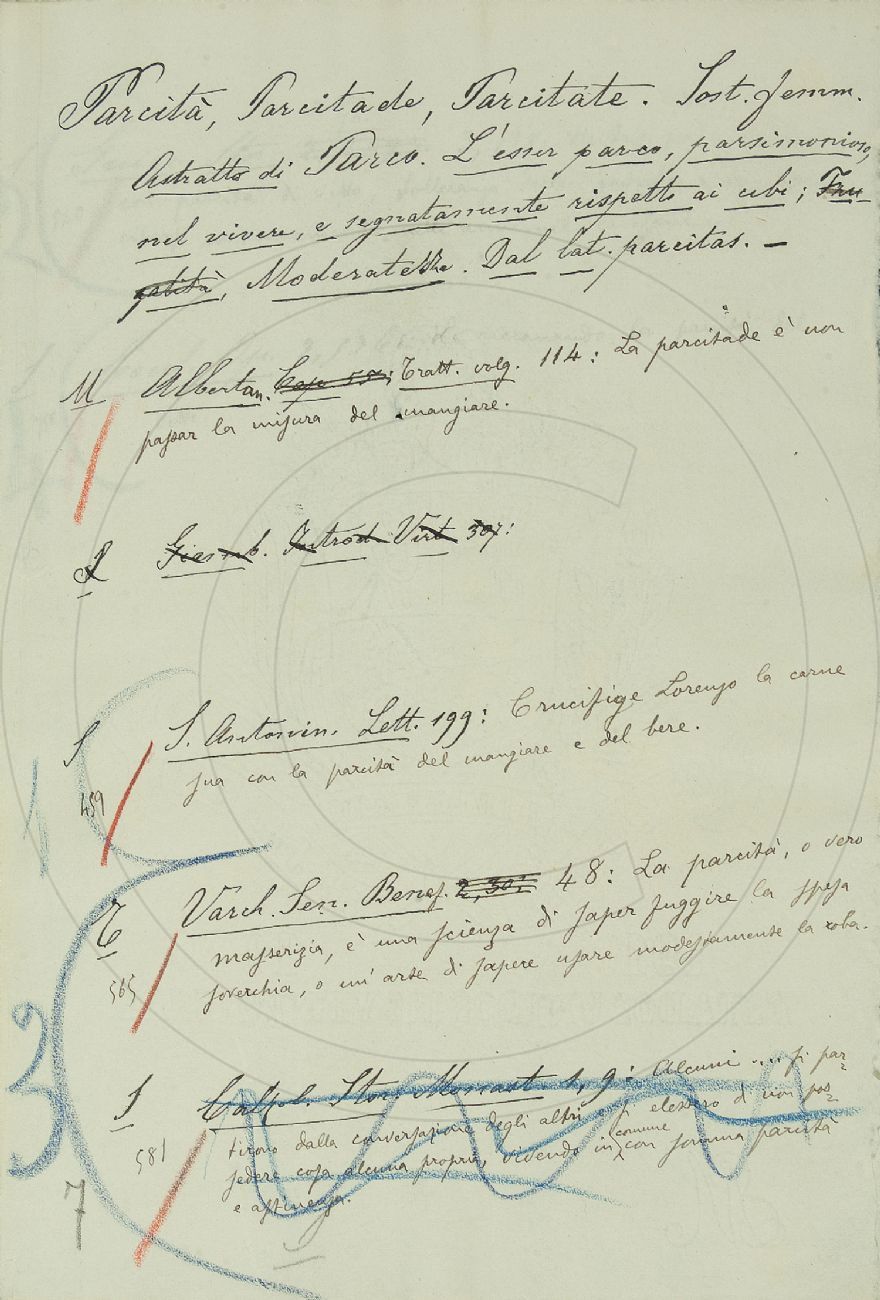 Parcità, Parcitade, Parcitate. Sost. femm.
Astratto di Parco. L'esser parco, parsimonioso,
nel vivere, e segnatamente rispetto ai cibi; Fru-
galità, Moderatezza. Dal lat. parcitas. –
M Albertan. Tratt. volg. 114: La parcitade è non
passar la misura del mangiare.
Giamb. Introd. Virt 307:
S S. Antonin. Lett. 199: Crucifige Lorenzo la carne
459 sua con la parcità del mangiare e del bere.
T Varch. Sen. Benef. 2, 30: 48: La parcità, o vero
masserizia, è una scienza di saper fuggire la spesa
565 soverchia, o un' arte di sapere usare modestamente la roba.
39
S Calzol. Stor. Monast. 1, 9: Alcuni .... si par-
tirono dalla conversazione degli altri e si elessero di non pos-
581 sedere cosa alcuna propria, vivendo in comune con somma parcità
e astinenza.
7